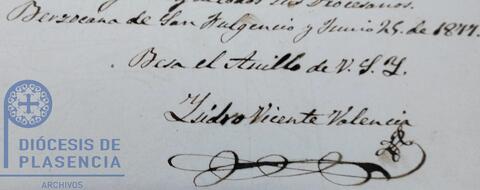 sus Diocesanos.
Berzocana de San Fulgencio y Junio 25. de 1877.
Besa el Anillo de V. S. Y.
Ysidro Vicente Valencia
DIÓCESIS DE
PLASENCIA
ARCHIVOS